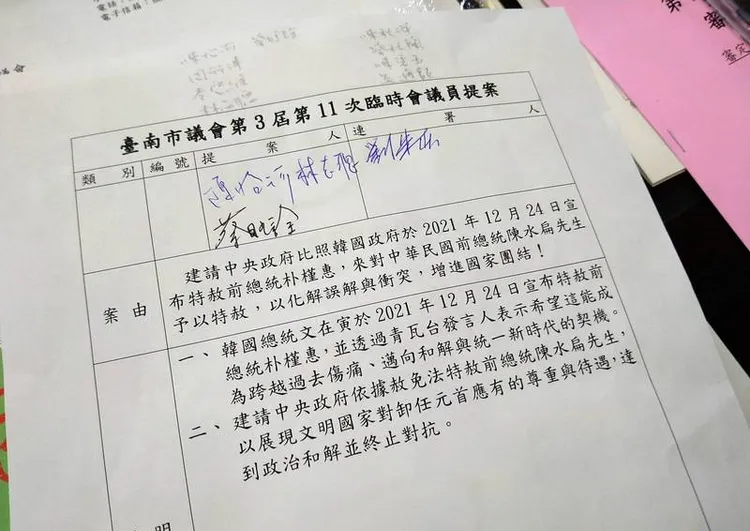 電子信箱
議會
審
審定
臺南市議會第3屆第11次臨時會議員提案
類別 編號 提案人 連署人
蔡旺詮
案由
建請中央政府比照韓國政府於2021年12月24日宣
布特赦前總統朴槿惠，來對中華民國前總統陳水扁先生
予以特赦，以化解誤解與衝突，增進國家團結！
一、韓國總統文在寅於2021年12月24日宣布特赦前
總統朴槿惠，並透過青瓦台發言人表示希望這能成
為跨越過去傷痛、邁向和解與統一新時代的契機。
二、建請中央政府依據赦免法特赦前總統陳水扁先生，
以展現文明國家對卸任元首應有的尊重與待遇，達
到政治和解並終止對抗。
明